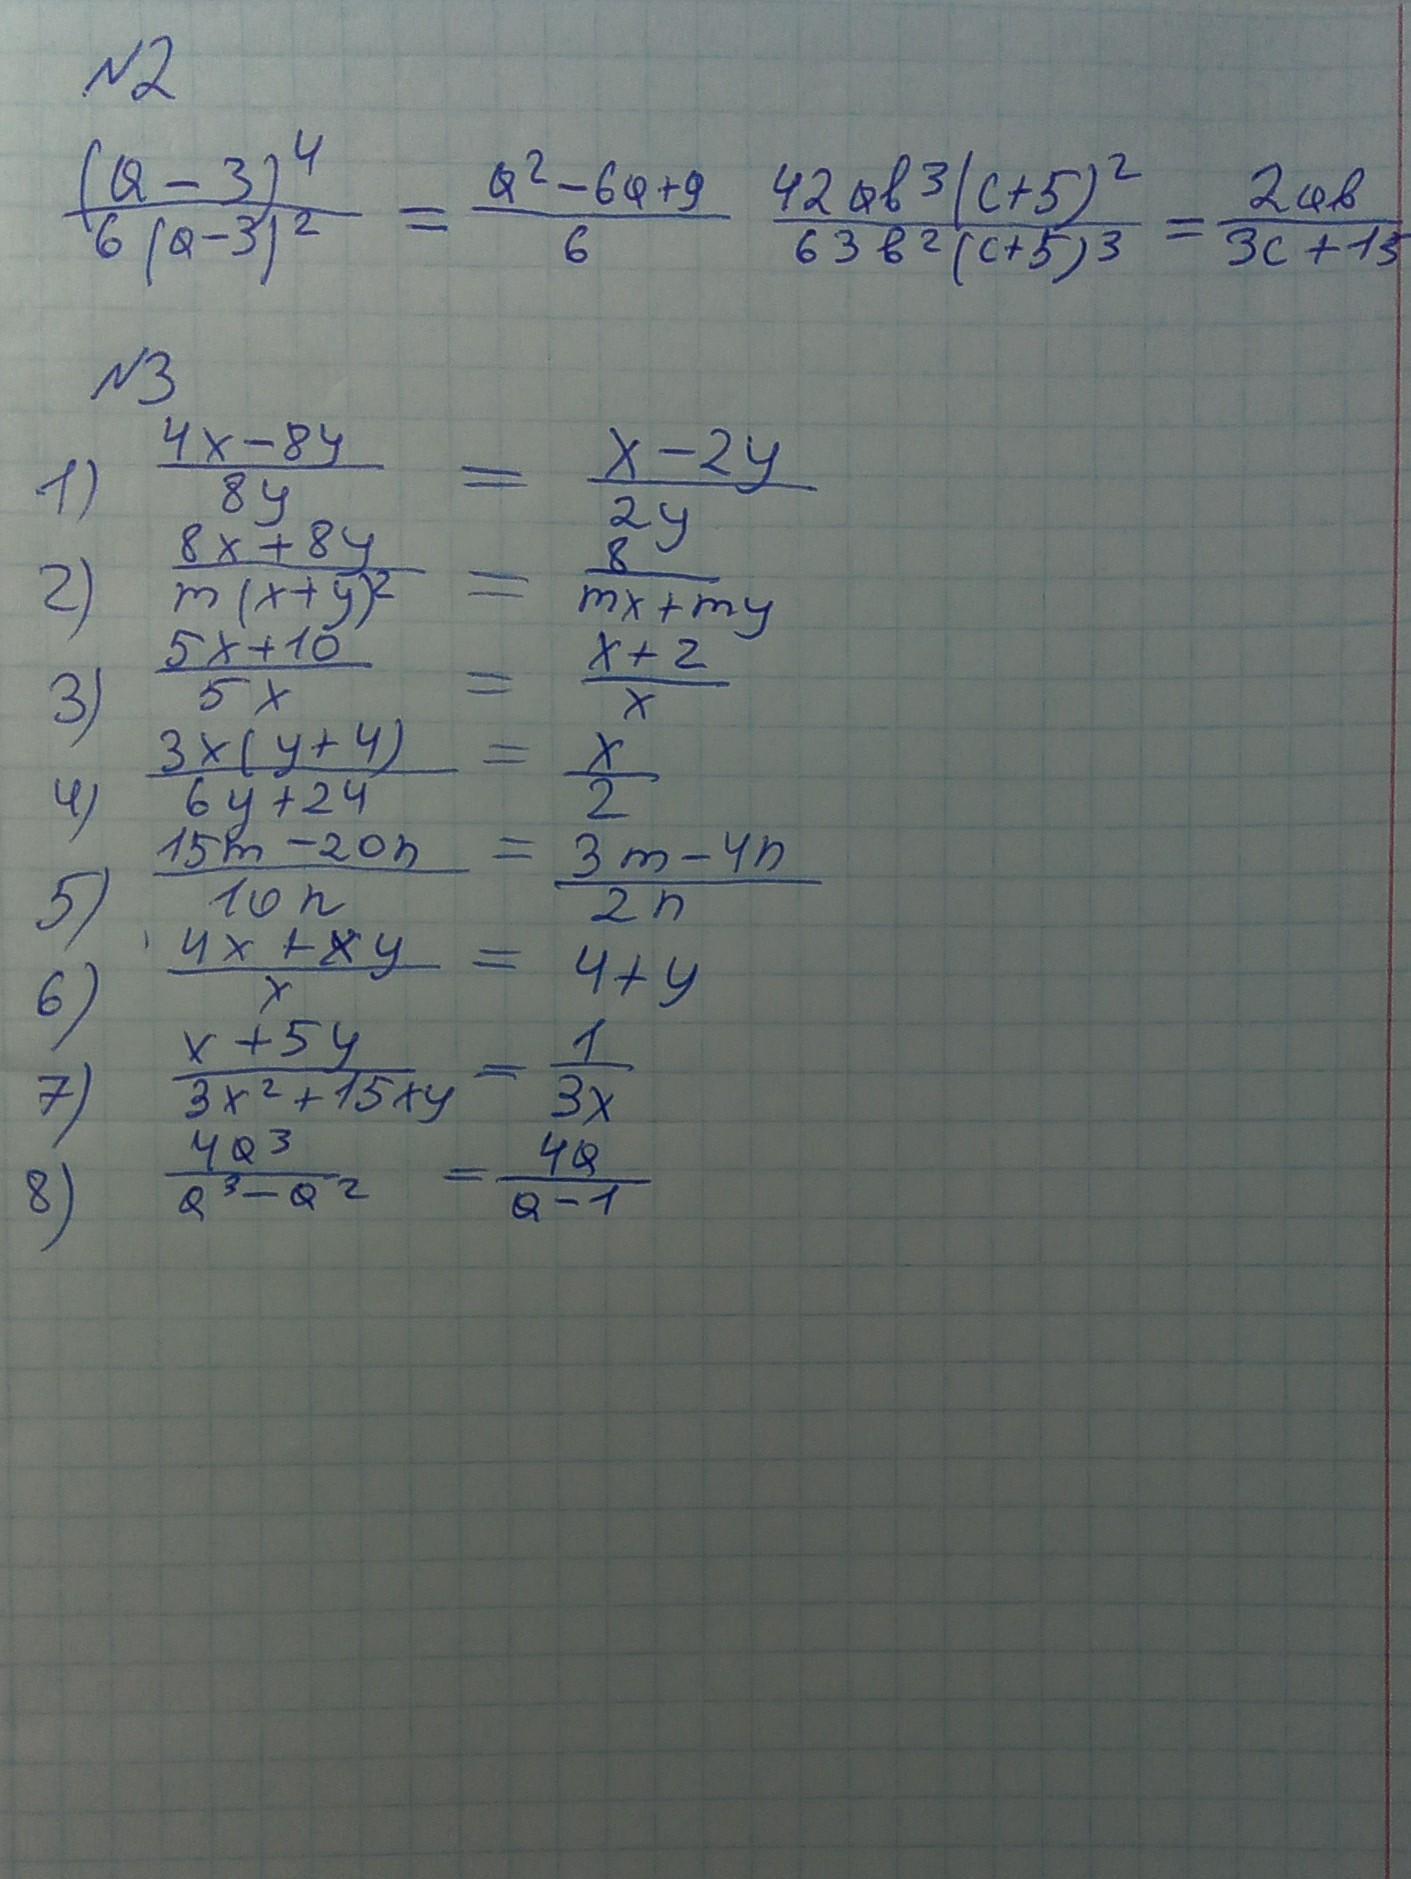 №2
(a-3)⁴/6(a-3)² = a²-6a+9/6 42ab³(c+5)²/63b²(c+5)³ = 2ab/3c+15
№3
1) 4x-8y/8y = x-2y/2y
2) 8x+8y/m(x+y)² = 8/mx+my
3) 5x+10/5x = x+2/x
4) 3x(y+4)/6y+24 = x/2
5) 15m-20n/10n = 3m-4n/2n
6) 4x+xy/x = 4+y
7) x+5y/3x²+15xy = 1/3x
8) 4a³/a³-a² = 4a/a-1